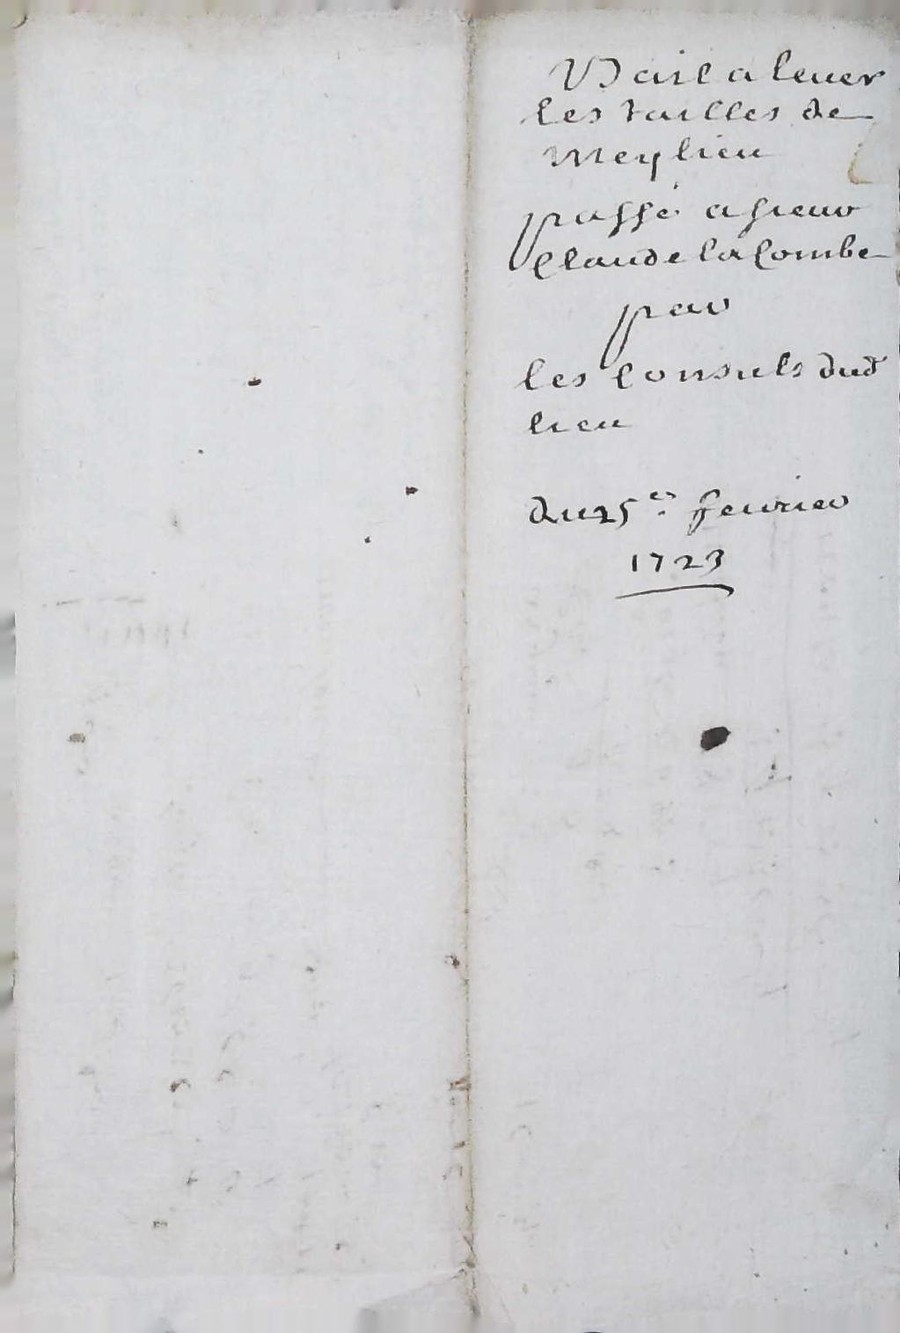 Bail a lever
les tailles de
Meylieu
passé a sieur
Claude la Combe
par
les Consuls dud
lieu
du 25e fevrier
1723